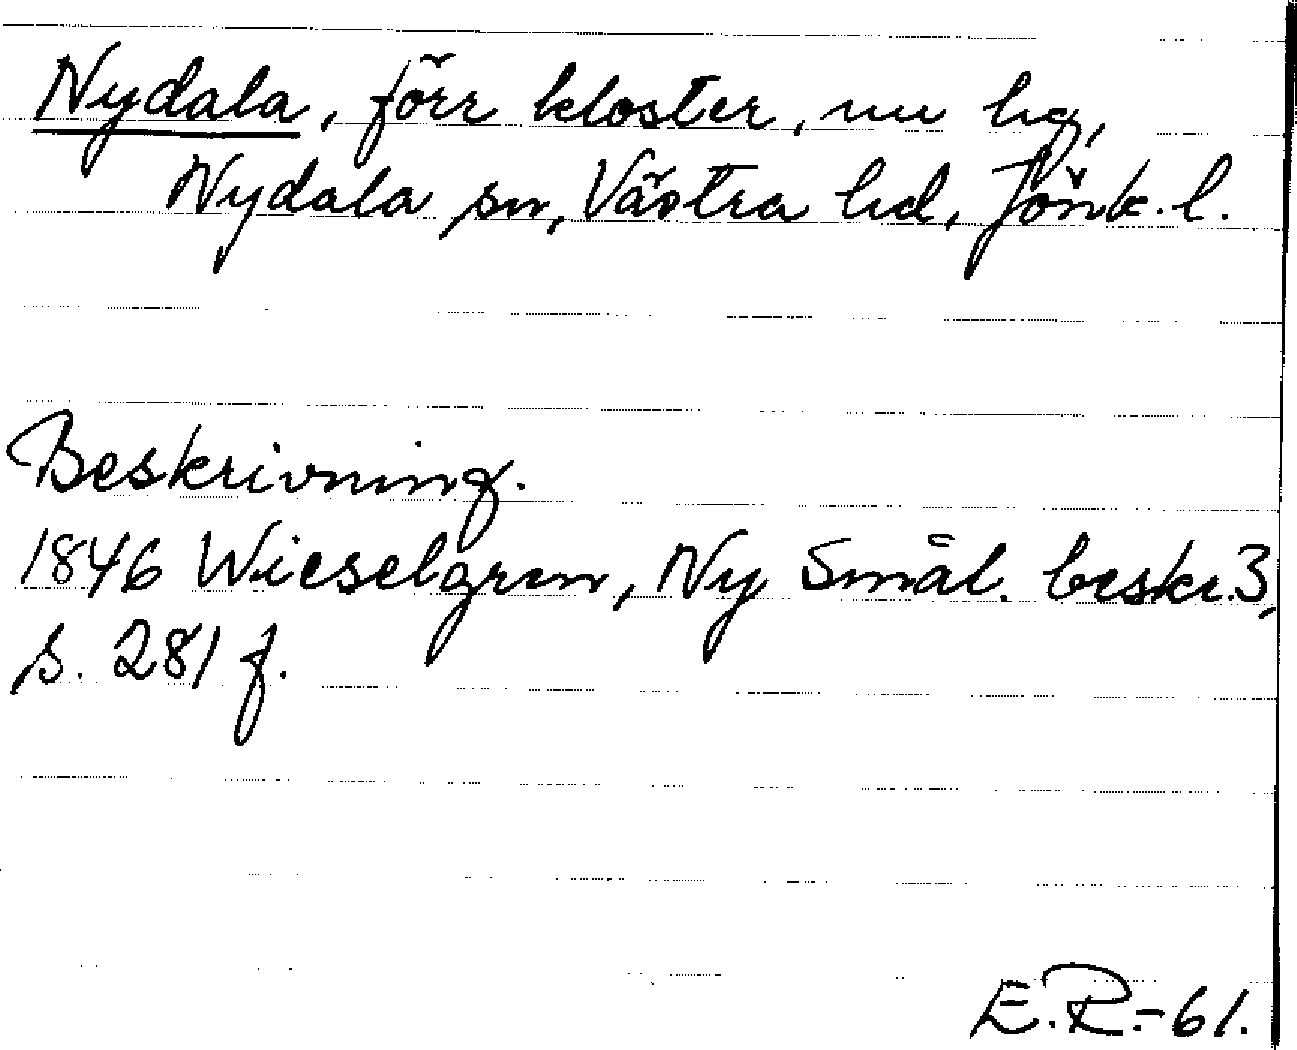 Nydala, förr kloster, nu hg,
Nydala sn, Västra hd, Jönk. l.
Beskrivning.
1846 Wieselgren, Ny Smål. beskr. 3,
s. 281 f.
E.R.-61.